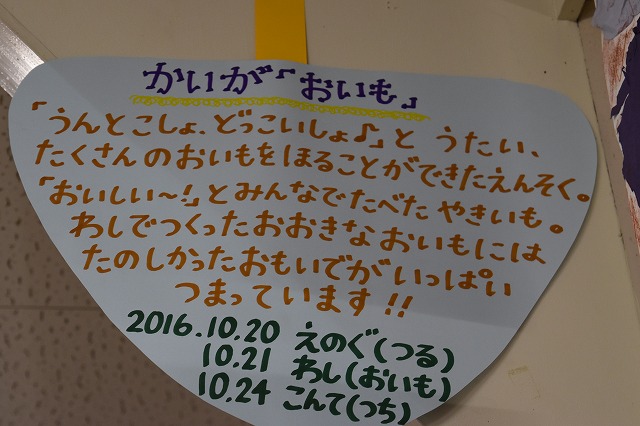 かいが「おいも」
「うんとこしょ、どっこいしょ♪」と うたい、
たくさんのおいもをほることができたえんそく。
「おいしい～!」とみんなでたべた やきいも。
わしでつくったおおきなおいもには
たのしかったおもいでがいっぱい
つまっています!!
2016.10.20 えのぐ(つる)
10.21 わし(おいも)
10.24 こんて(つち)